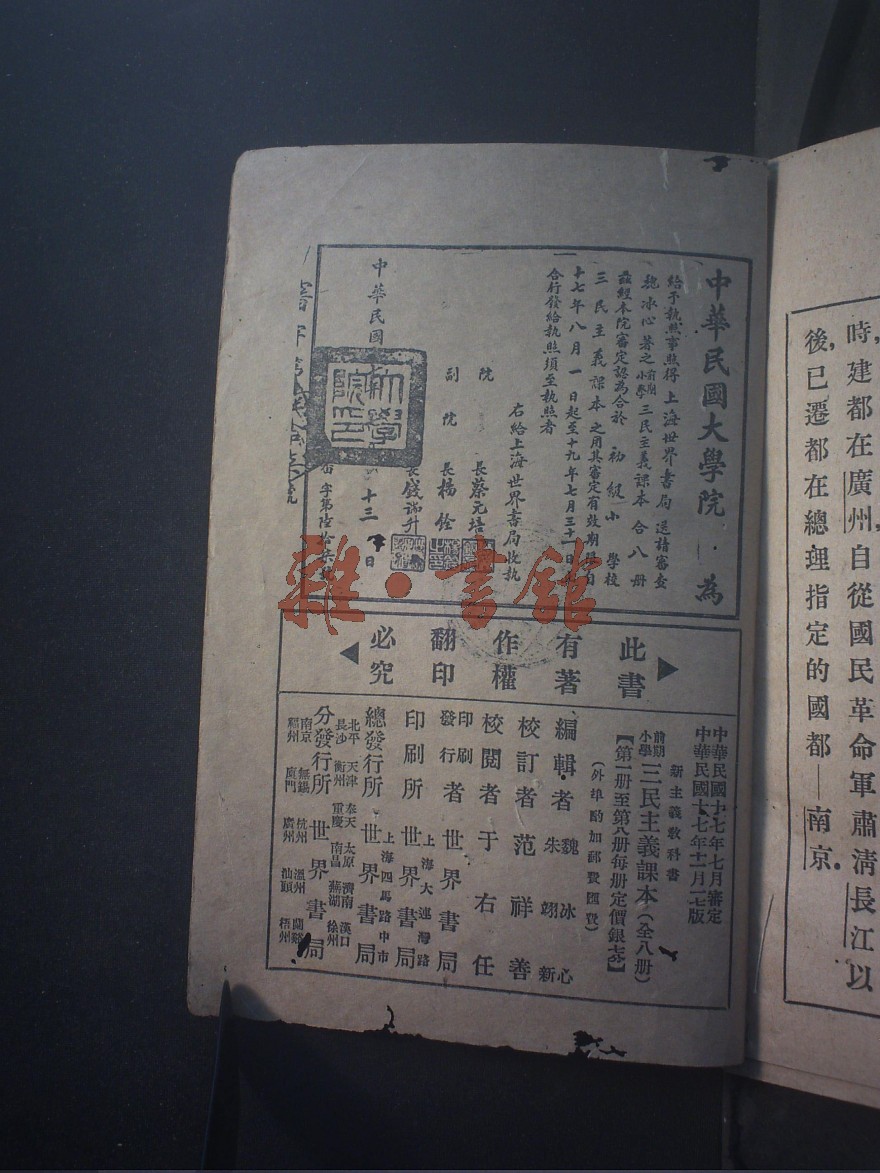 時，建都在廣州，自從國民革命軍肅清長江以
後，已遷都在總理指定的國都—南京。
中華民國大學院 為
給予執照事照得上海世界書局送請審查
魏冰心著之前期小學三民主義課本合八册
茲經本院審定認為合於初級小學校
三民主義課本之用其審定有效期間自
十七年八月一日起至十九年七月三十一日
合行發給執照須至執照者
右給上海世界書局收執
院長蔡元培
副院長楊銓
長錢端升
中華民國 十三日
字第陸拾柒號
大學院印
此書有著作權翻印必究
中華民國十七年七月審定
中華民國十七年十一月十七版
新主義教科書
前期小學三民主義課本（全八册）
【第一册至第八册每册定價銀七分】
（外埠酌加郵費匯費）
編輯者 魏冰心 朱翊新
校訂者 范祥善
校閱者 于右任
印刷發行者 世界書局
印刷所 上海大連灣路 世界書局
總發行所 上海四馬路中市 世界書局
分發行所 世界書局
北平 天津 奉天 太原 濟南 漢口
長沙 衡州 重慶 南昌 蕪湖 徐州
南京 無錫 杭州 溫州 蘭谿
福州 廈門 廣州 汕頭 梧州
雜·書館